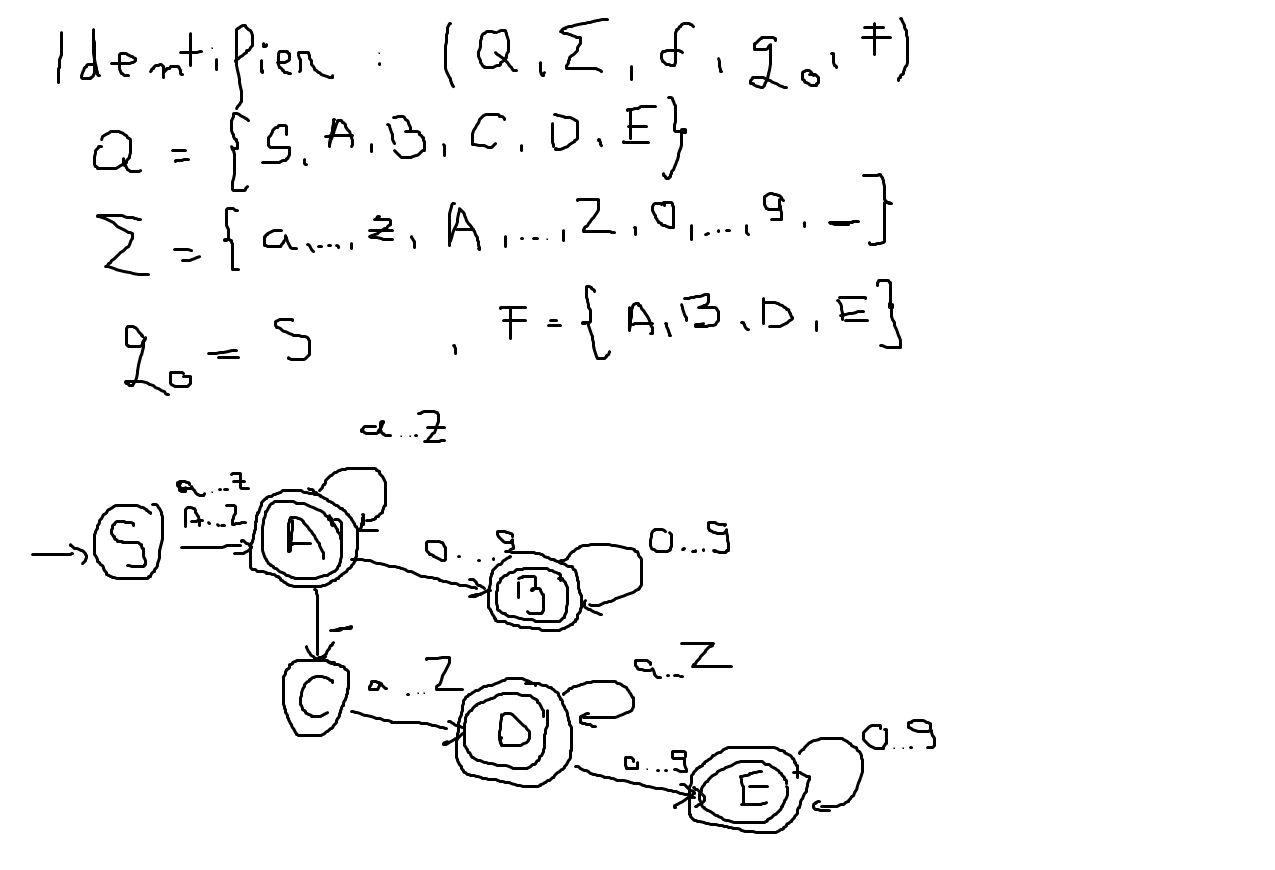 Identifier : (Q, Σ, δ, q₀, F)
Q = {S, A, B, C, D, E}
Σ = {a,...,z, A,...,Z, 0,...,9, _}
q₀ = S , F = {A, B, D, E}
a...Z
a...z
A...Z
S
A
0...9
0...9
B
_
a...Z
C
a...Z
D
0...9
0...9
E